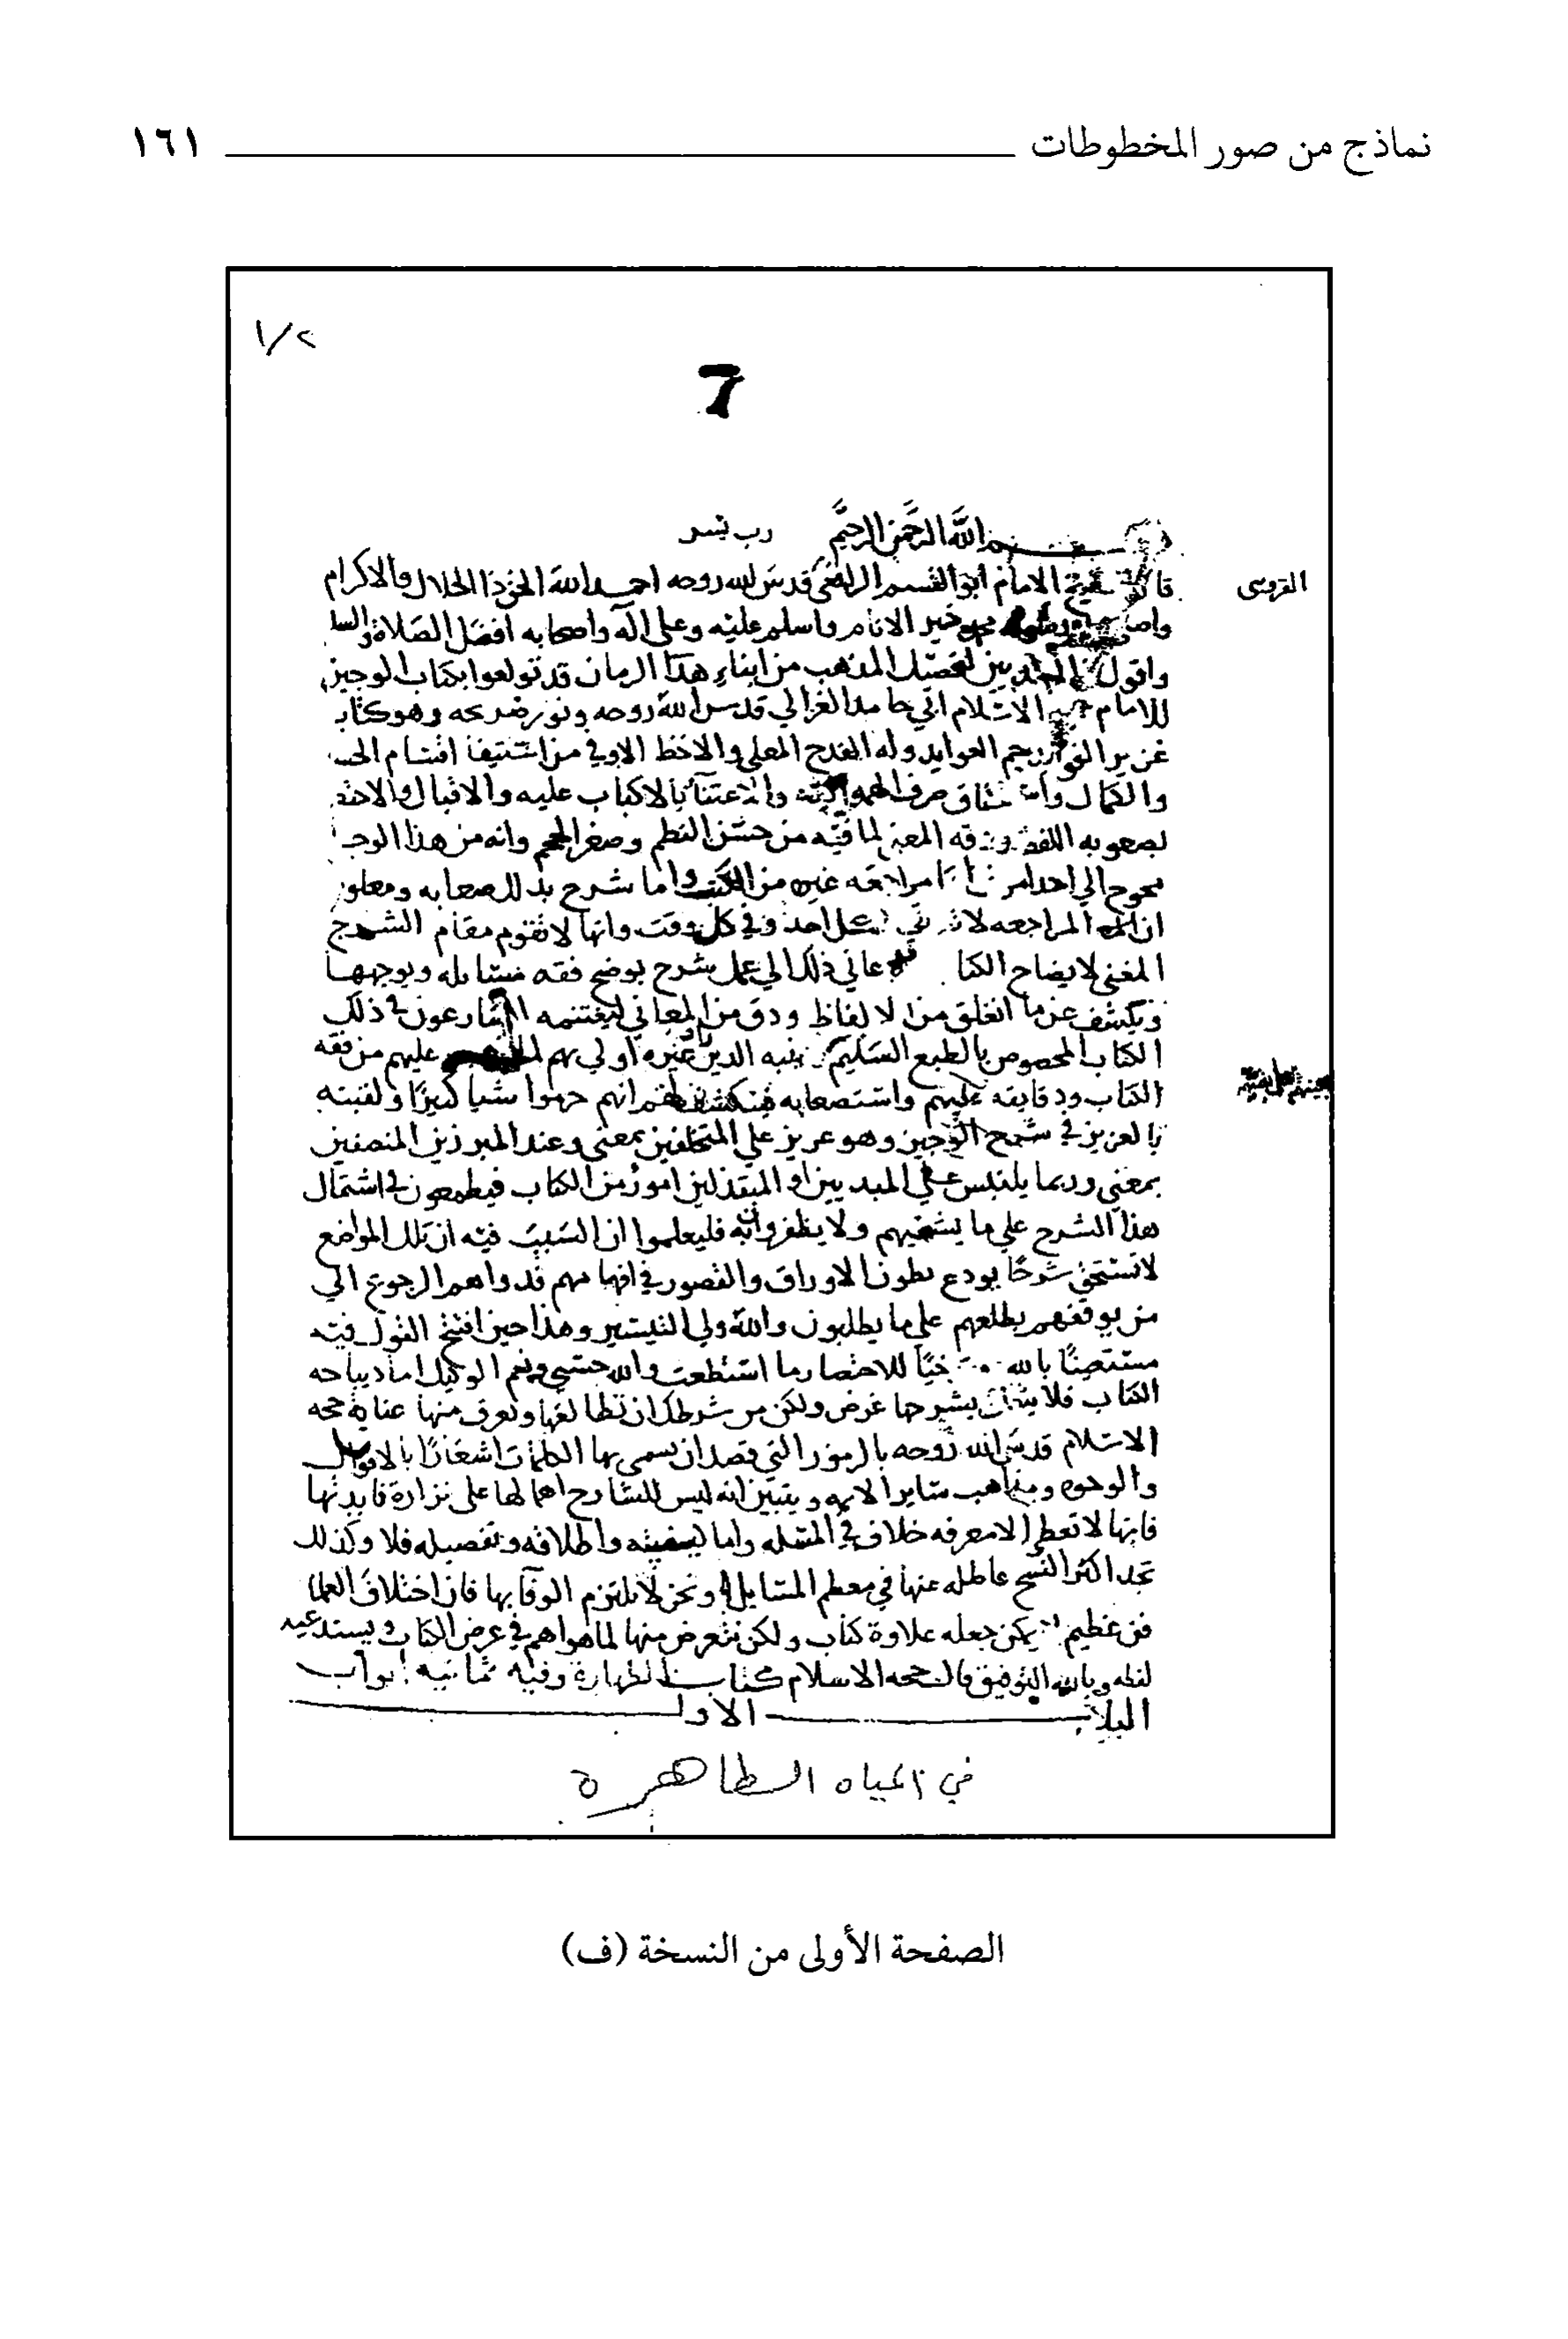 نماذج من صور المخطوطات ١٦١
١/٢
7
بسم الله الرحمن الرحيم رب يسر
الامام ابو القسم الرافعي قدس الله روحه احمد الله الحق ذا الجلال والاكرام
خير الانام واسلم عليه وعلى اله واصحابه افضل الصلاة والسلا
واقول المبتدين لتحصيل المذهب من ابناء هذا الزمان قد تولعوا بكتاب الوجيز
للامام الاسلام ابي حامد الغزالي قدس الله روحه ونور ضريحه وهو كتاب
غزير الفوايد جم العوايد وله القدح المعلى والاحظ الاوفى من استيفا اقسام الحسـ
والكمال صرف الهمم اليه والاعتنآ بالاكباب عليه والاقبال والاختـ
لصعوبه اللفظ ودقه المعنى لما فيه من حسن النظم وصغر الحجم وانه من هذا الوجـ
محوج الى احد امرين اما مراجعه غيره من الكتب واما شرح يذلل صعابه ومعلوم
ان المراجعه لا كل احد وفي كل وقت وانها لا تقوم مقام الشرح
المغنى لايضاح الكتا دعاني ذلك الى عمل شرح يوضح فقه مسايله ويوجهها
ويكشف عن ما انغلق من الالفاظ ودق من المعاني ليغتنمه الشارعون في ذلك
الكتاب المخصوص بالطبع السليم اولى بهم عليهم من فقه
الكتاب ودقايقه عليهم واستصعابه انهم حرموا شيا كثيرا ولقبته
بالعزيز في شرح الوجيز وهو عزيز على المتخلفين بمعنى وعند المبرزين المنصفين
بمعنى وربما يلتبس على المبتديين او المبتذلين امور من الكتاب فيطمعون في اشتمال
هذا الشرح على ما يشفيهم ولا يظفروا به فليعلموا ان السبب فيه ان تلك المواضع
لا تستحق شرحا يودع بطون الاوراق والقصور في افهامهم فدواهم الرجوع الى
من يوقفهم يطلعهم على ما يطلبون والله ولي التيسير وهذا حين افتتح القول فيه
مستعينا بالله للاختصار ما استطعت والله حسبي ونعم الوكيل اما ديباجه
الكتاب فلا بشرحها غرض ولكن من شرطك ان تطالعها وتعرف منها عناية حجه
الاسلام قدس الله روحه بالرموز التي قصد ان يسمى بها الكلمات اشعارا بالاقوال
والوجوه ومذاهب ساير الايمه ويتبين انه ليس للشارح اهمالها على نزارة فايدتها
فانها لا تعطى الا معرفه خلاف في المسله واما كيفيته واطلاقه وتفصيله فلا وكذلك
تجد اكثر النسخ عاطله عنها في معظم المسايل ونحن لا نلتزم الوفآ بها فان اختلاف العلما
فن عظيم لا يمكن جعله علاوة كتاب ولكن نتعرض منها لما هو اهم في عرض الكتاب ويستدعيه
لفظه وبالله التوفيق قال حجه الاسلام كتاب الطهارة وفيه ثمانيه ابواب
الباب الاول
في المياه الطاهرة
الصفحة الأولى من النسخة (ف)